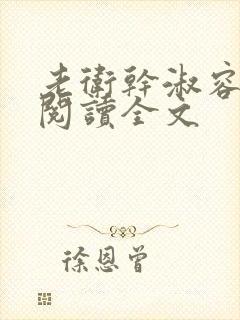 老衛幹淑容
閱讀全文
徐恩曾